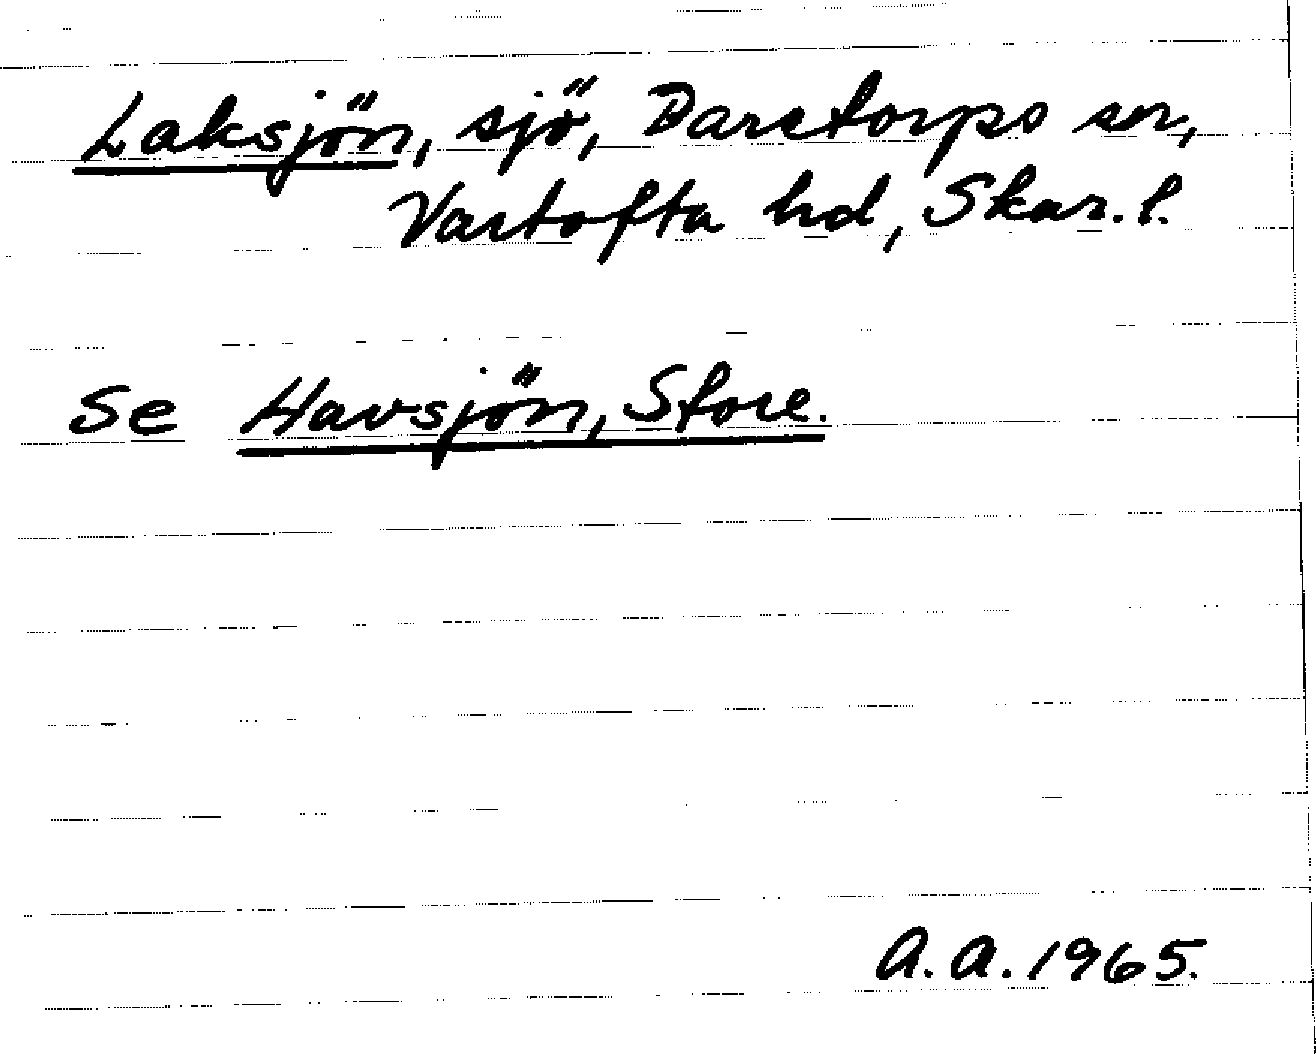 Laksjön, sjö, Daretorps sn,
Vartofta hd, Skar. l.
Se Havsjön, Store.
A. A. 1965.